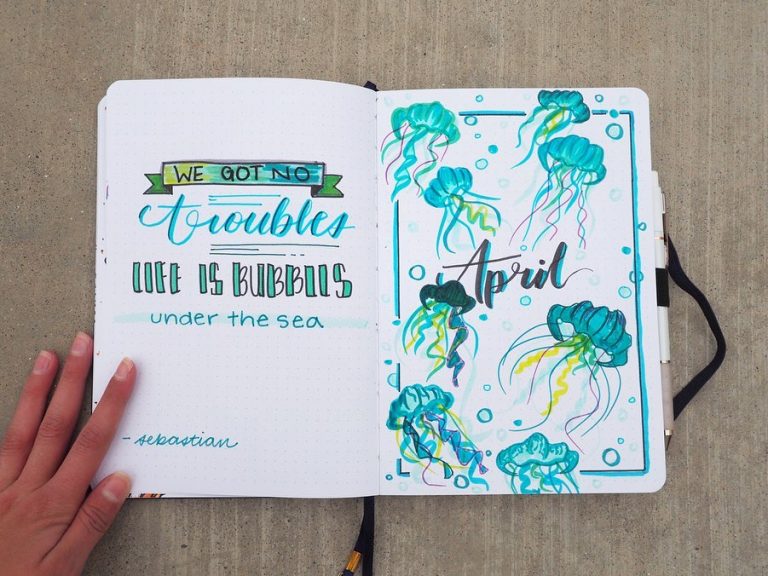 WE GOT NO
troubles
LIFE IS BUBBLES
under the sea
- sebastian
April